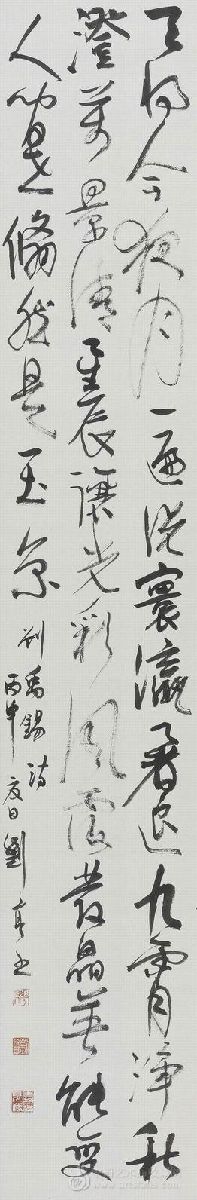 天将今夜月一遍洗寰瀛暑退九霄净秋
澄萬景清星辰讓光彩風露發晶英能變
人间世翛然是玉京
刘禹錫詩
丙午夏日劉